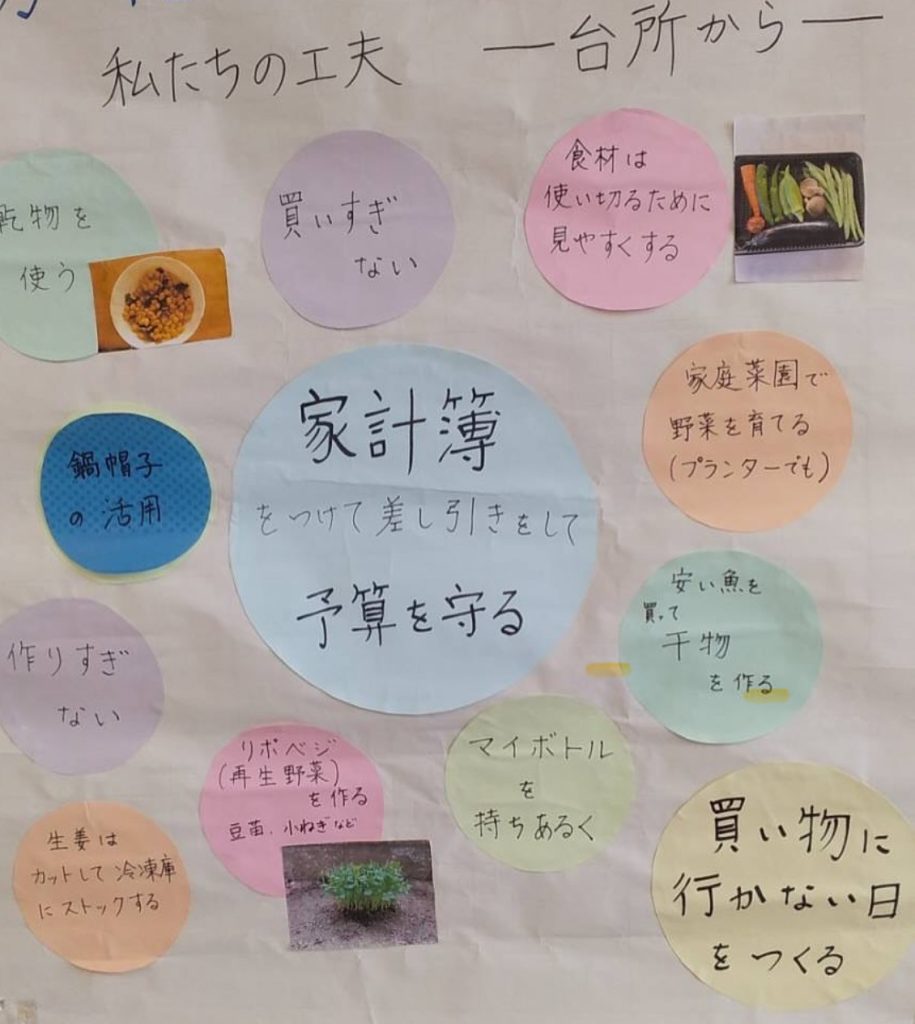 私たちの工夫 ―台所から―
乾物を
使う
買いすぎ
ない
食材は
使い切るために
見やすくする
家計簿
をつけて差し引きをして
予算を守る
家庭菜園で
野菜を育てる
(プランターでも)
鍋帽子
の活用
安い魚を
買って
干物
を作る
作りすぎ
ない
リボベジ
(再生野菜)
を作る
豆苗、小ねぎなど
マイボトル
を
持ちあるく
生姜は
カットして冷凍庫
にストックする
買い物に
行かない日
をつくる